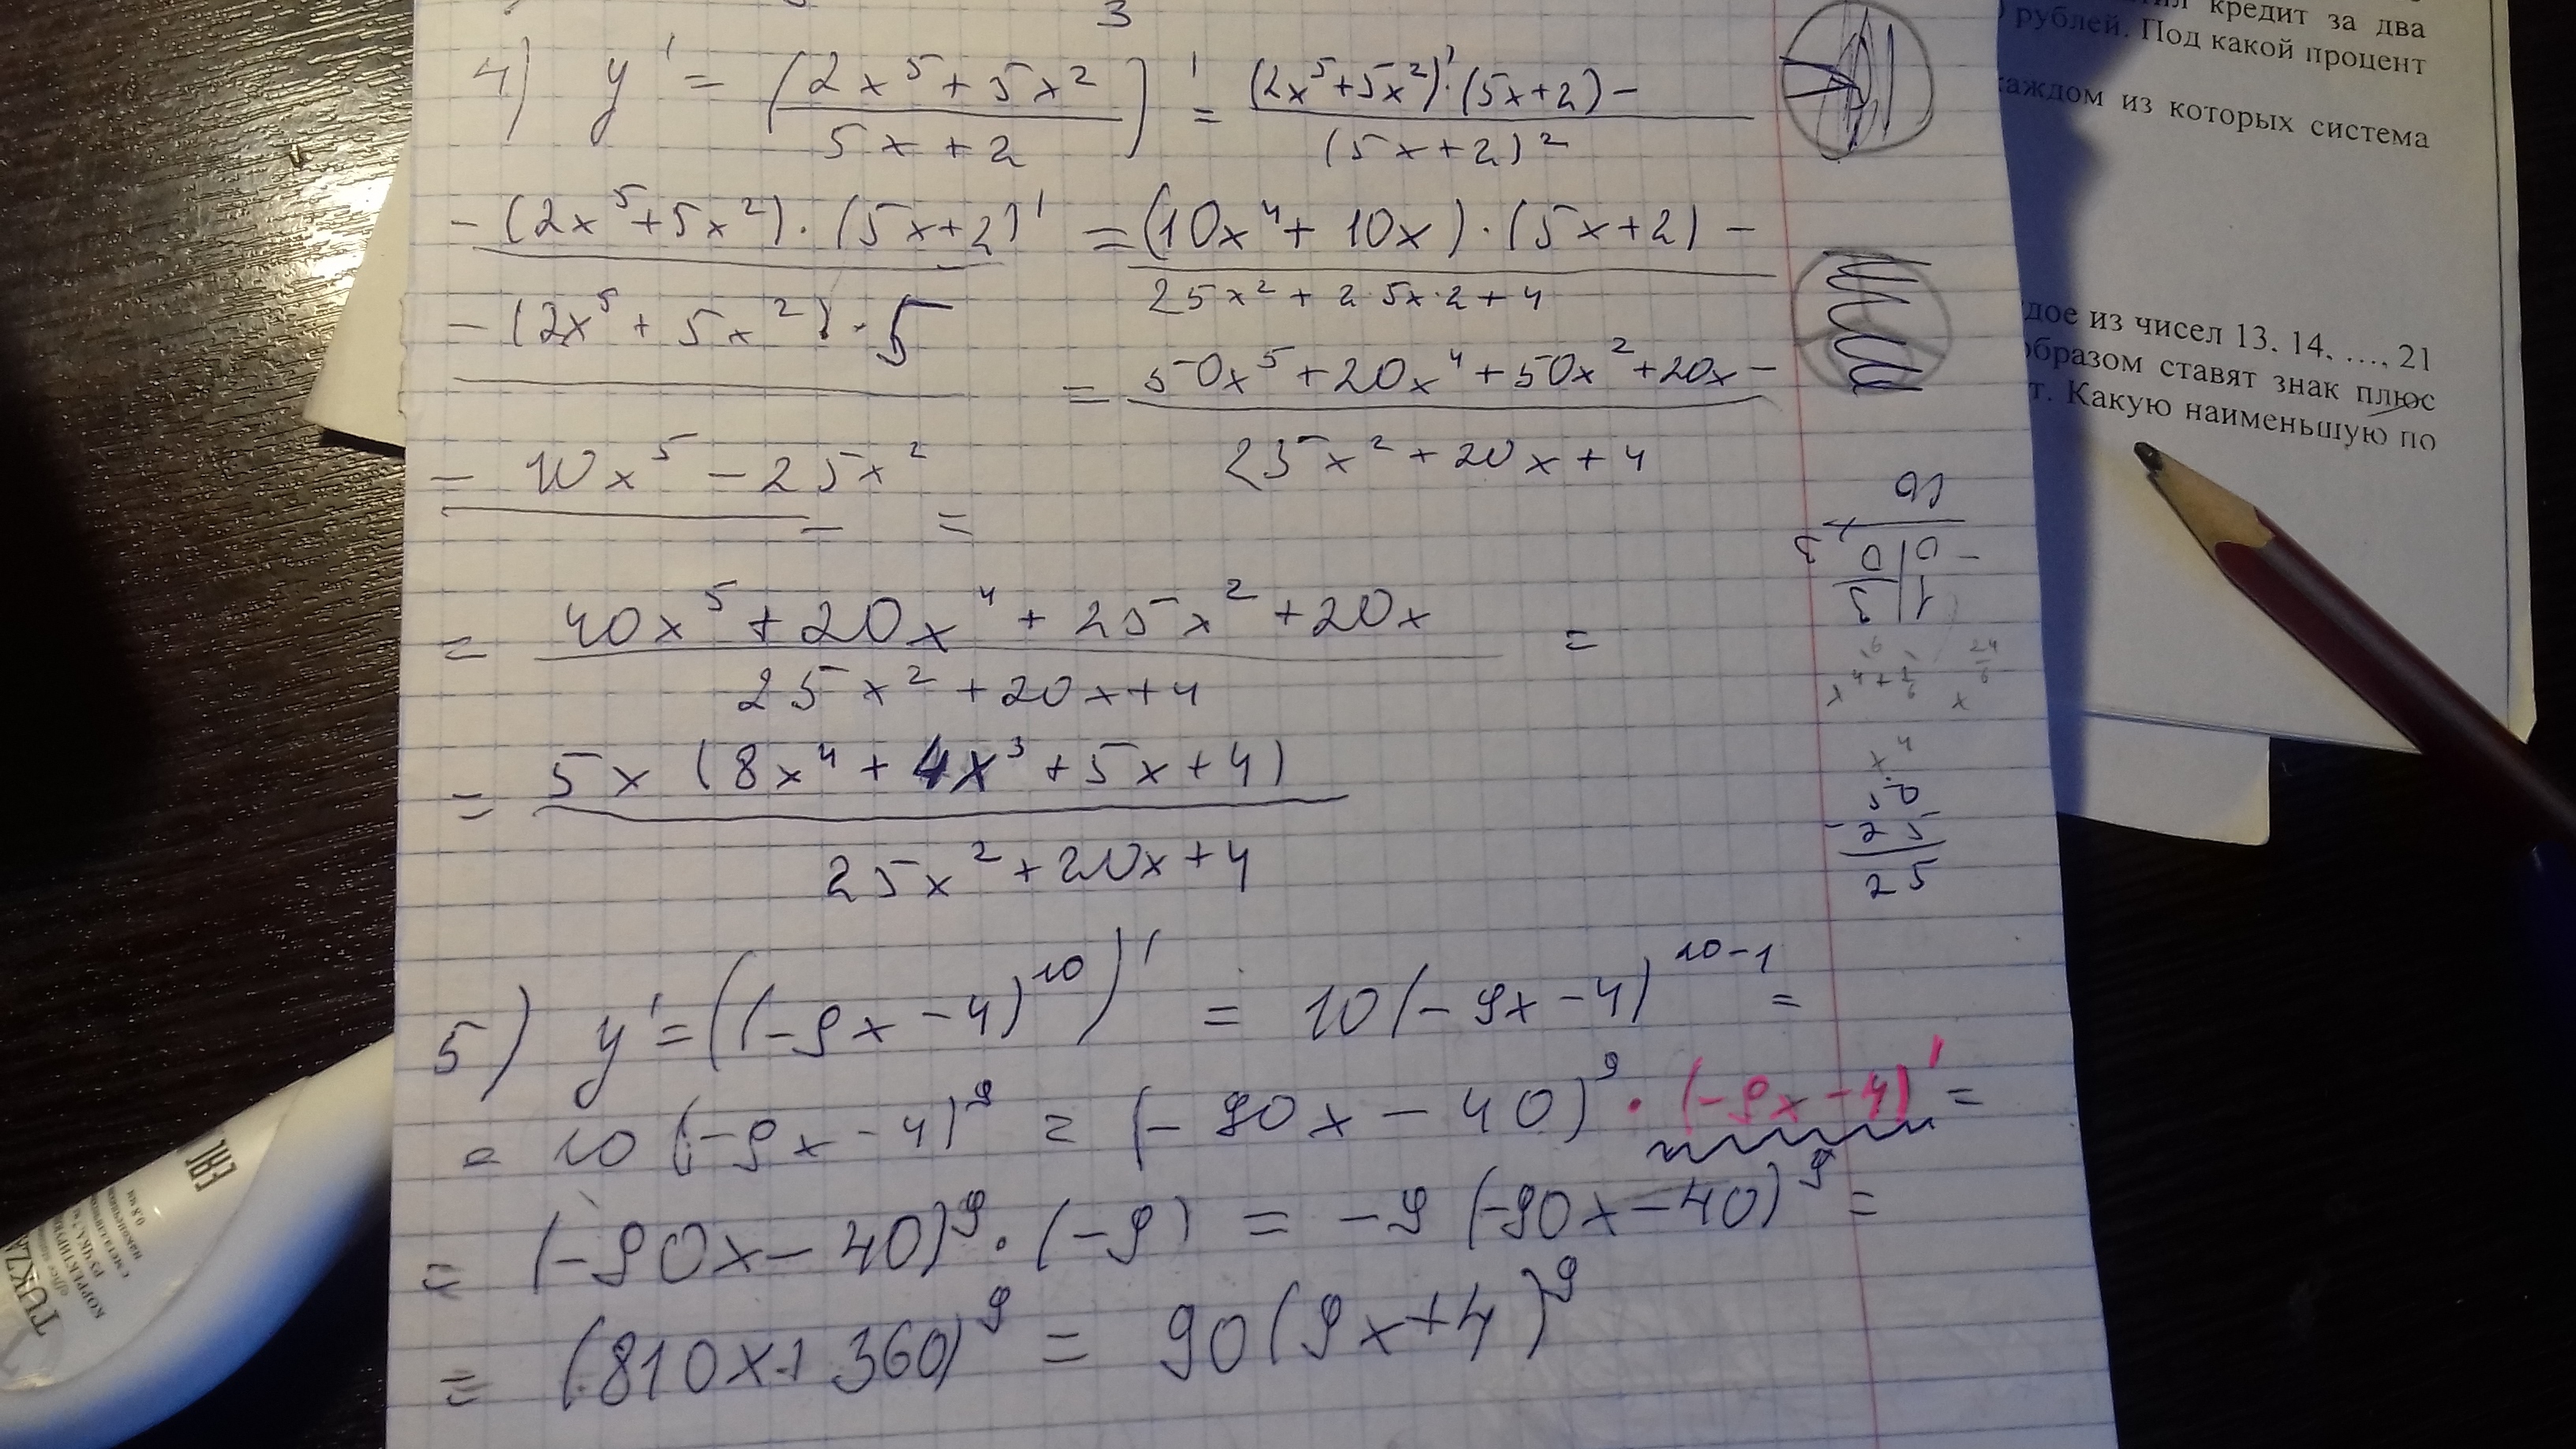 3
4) y' = (2x⁵+5x² / 5x+2)' = (2x⁵+5x²)'·(5x+2) − / (5x+2)²
− (2x⁵+5x²)·(5x+2)' = (10x⁴+10x)·(5x+2) − / 25x²+2·5x·2+4
− (2x⁵+5x²)·5
= 50x⁵+20x⁴+50x²+20x − / 25x²+20x+4
− 10x⁵−25x² =
= 40x⁵+20x⁴+25x²+20x / 25x²+20x+4 =
= 5x(8x⁴+4x³+5x+4) / 25x²+20x+4
5) y'=((-9x-4)¹⁰)' = 10(-9x-4)¹⁰⁻¹ =
= 10(-9x-4)⁹ = (-90x-40)⁹·(-9x-4)' =
= (-90x-40)⁹·(-9) = -9(-90x-40)⁹ =
= (810x+360)⁹ = 90(9x+4)⁹
50
-25
25
кредит за два
рублей. Под какой процент
каждом из которых система
из чисел 13, 14, ..., 21
образом ставят знак плюс
Какую наименьшую по
EAC
КОРРЕКТИРУЮ
РУЧКА
с металлическим
0.8 мм
TUKZA
office